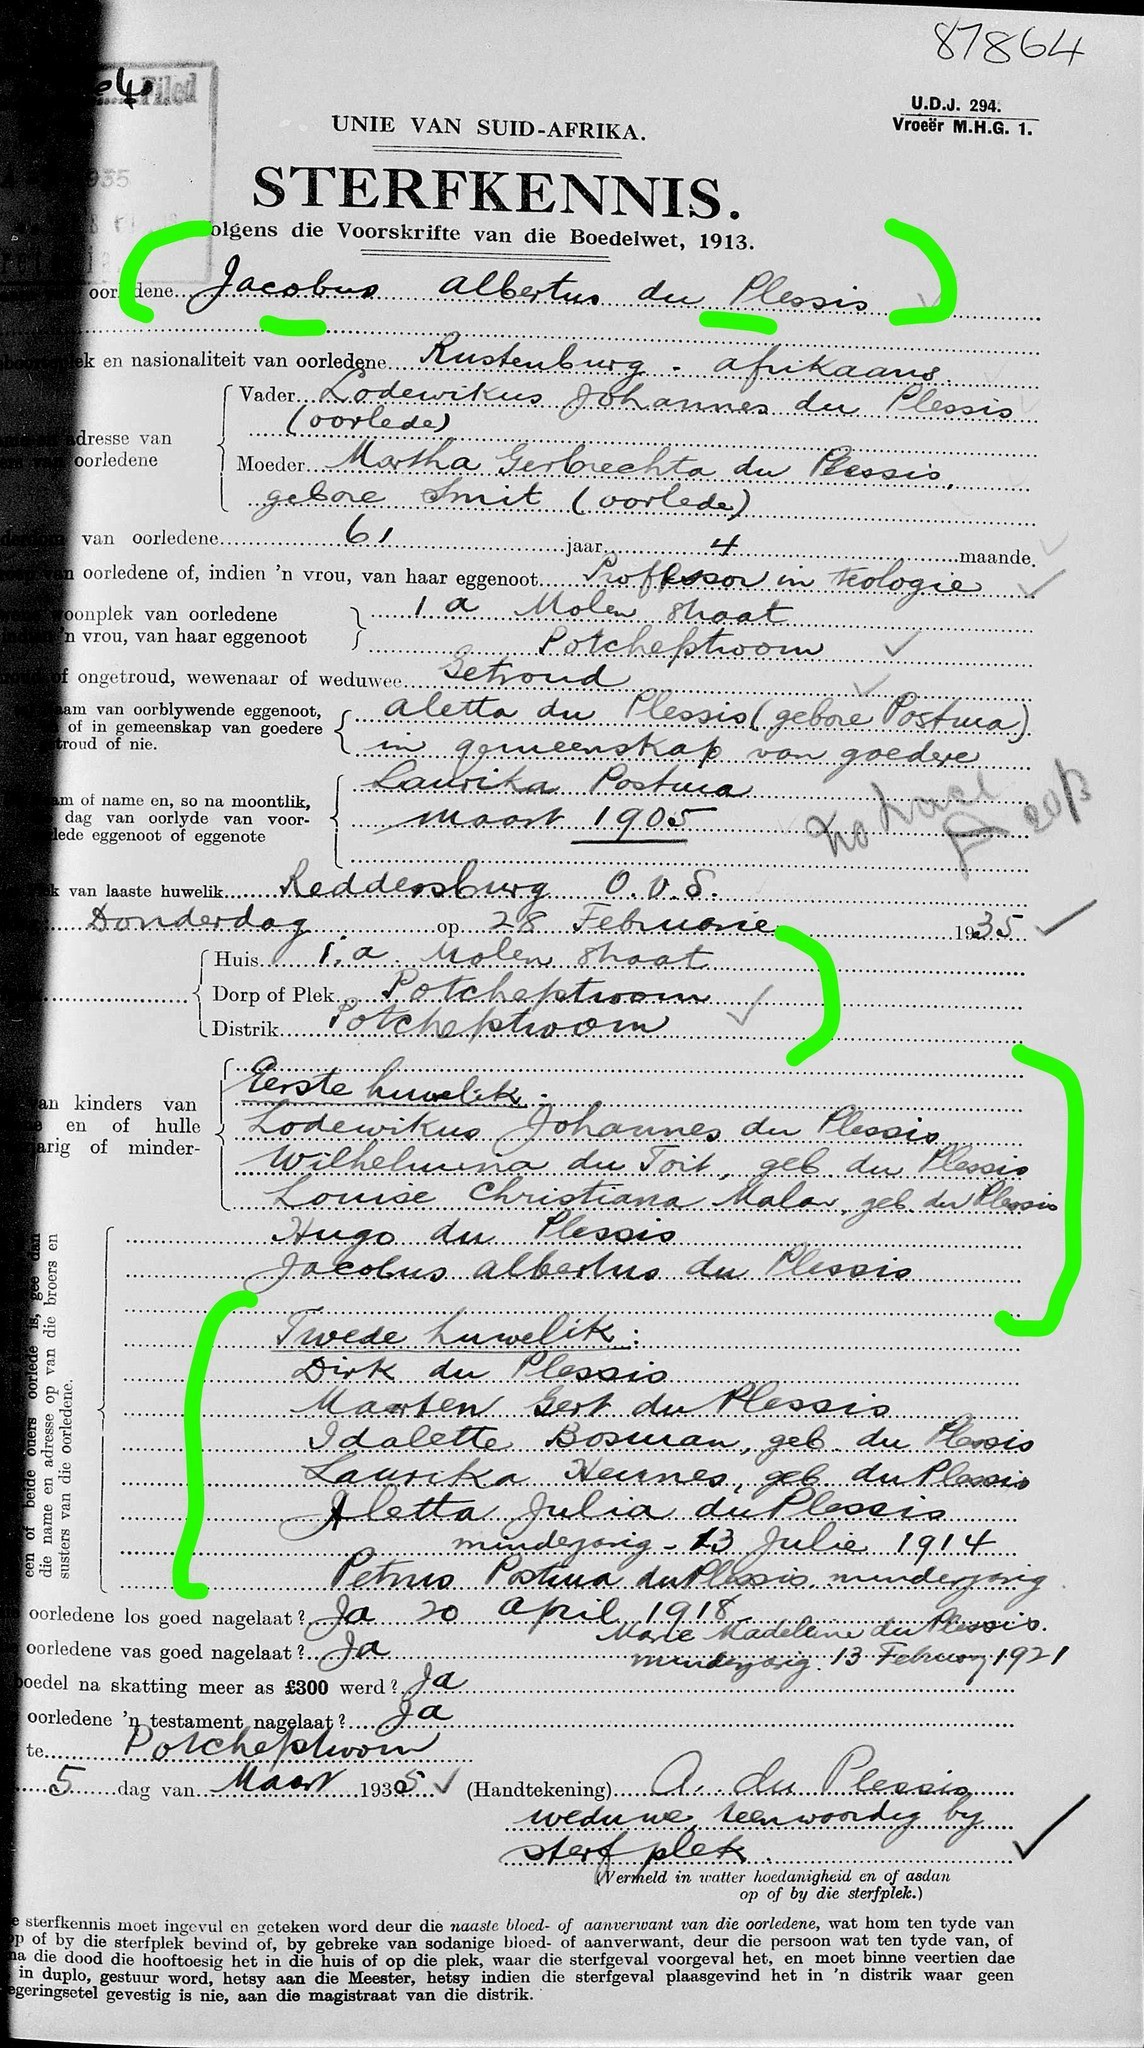 87864
Filed
1935
U.D.J. 294.
Vroeër M.H.G. 1.
UNIE VAN SUID-AFRIKA.
STERFKENNIS.
olgens die Voorskrifte van die Boedelwet, 1913.
oorledene Jacobus Albertus du Plessis
boorteplek en nasionaliteit van oorledene Rustenburg - Afrikaans.
Vader Lodewikus Johannes du Plessis
(oorlede)
adresse van
oorledene
Moeder Martha Gerbrechta du Plessis,
gebore Smit (oorlede)
derdom van oorledene 61 jaar 4 maande.
van oorledene of, indien 'n vrou, van haar eggenoot Professor in teologie
woonplek van oorledene
'n vrou, van haar eggenoot
1 a Molen Straat
Potchefstroom
of ongetroud, wewenaar of weduwee Getroud
aam van oorblywende eggenoot,
of in gemeenskap van goedere
troud of nie.
Aletta du Plessis (gebore Postma)
in gemeenskap van goedere
am of name en, so na moontlik,
dag van oorlyde van voor-
lede eggenoot of eggenote
Laurika Postma
Maart 1905
ek van laaste huwelik Reddersburg O.V.S.
Donderdag op 28 Februarie 1935
Huis 1.a. Molen Straat
Dorp of Plek Potchefstroom
Distrik Potchefstroom
an kinders van
en of hulle
jarig of minder-
Eerste huwelik:
Lodewikus Johannes du Plessis
Wilhelmina du Toit, geb. du Plessis
Louise Christiana Malan, geb. du Plessis
Hugo du Plessis
Jacobus Albertus du Plessis
een of beide ouers oorlede is, gee dan
die name en adresse op van die broers en
susters van die oorledene.
Twede huwelik:
Dirk du Plessis
Maarten Gert du Plessis
Idalette Bosman, geb. du Plessis
Laurika Heunes, geb du Plessis
Aletta Julia du Plessis
minderjarig - 13 Julie 1914
Petrus Postma du Plessis minderjarig
oorledene los goed nagelaat? Ja 20 April 1918
Marie Madeleine du Plessis.
oorledene vas goed nagelaat? Ja
minderjarig. 13 February 1921
boedel na skatting meer as £300 werd? Ja
oorledene 'n testament nagelaat? Ja
te Potchefstroom
5 dag van Maart 1935
(Handtekening) A. du Plessis
weduwe, teenwoordig by
sterfplek.
(Vermeld in watter hoedanigheid en of asdan
op of by die sterfplek.)
e sterfkennis moet ingevul en geteken word deur die naaste bloed- of aanverwant van die oorledene, wat hom ten tyde van
op of by die sterfplek bevind of, by gebreke van sodanige bloed- of aanverwant, deur die persoon wat ten tyde van, of
na die dood die hooftoesig het in die huis of op die plek, waar die sterfgeval voorgeval het, en moet binne veertien dae
in duplo, gestuur word, hetsy aan die Meester, hetsy indien die sterfgeval plaasgevind het in 'n distrik waar geen
egeringsetel gevestig is nie, aan die magistraat van die distrik.